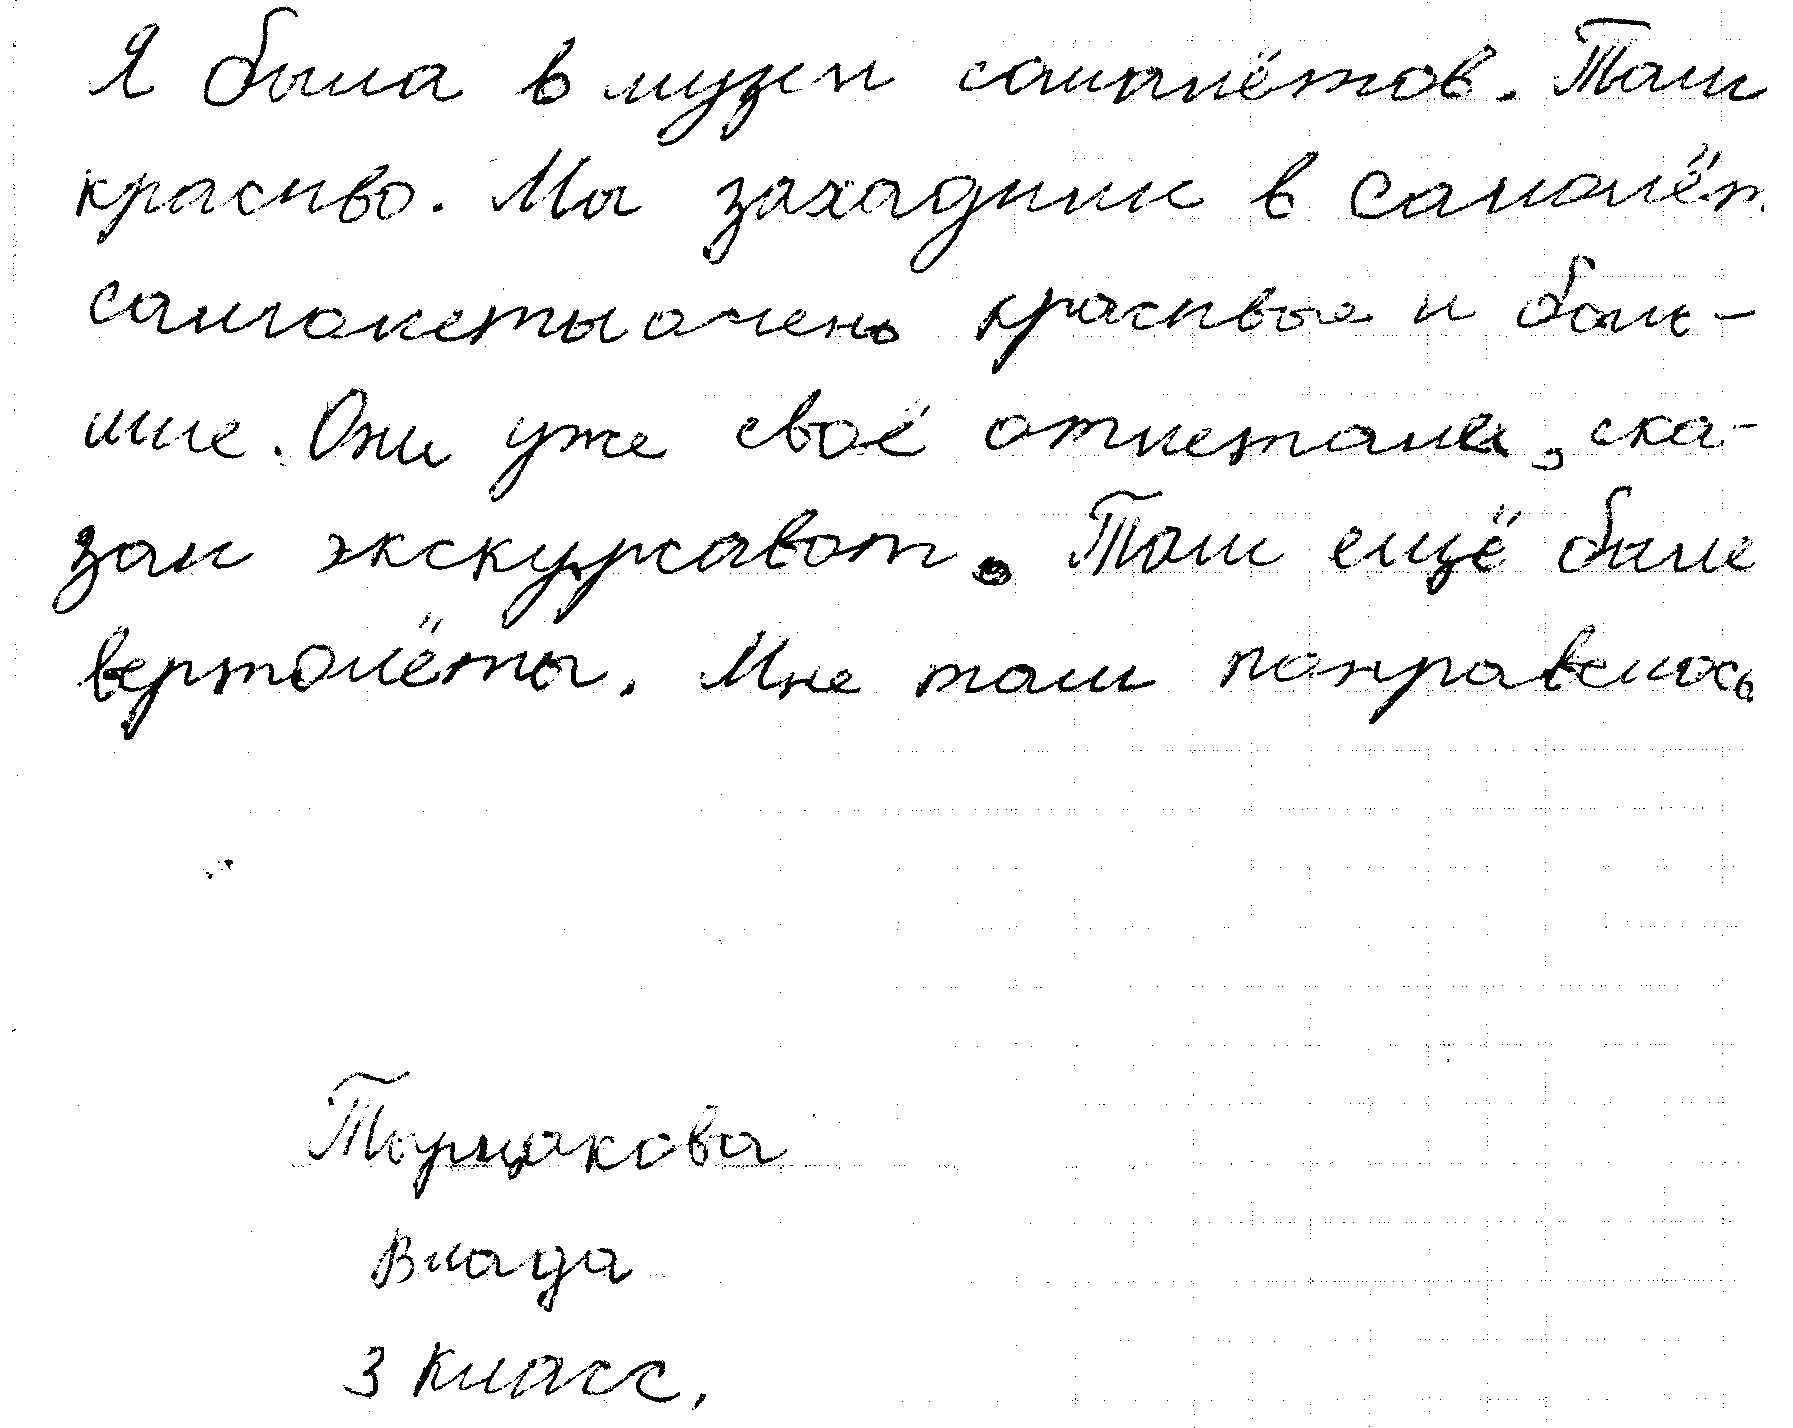 Я была в музеи самалётов. Там
красиво. Мы захадили в самолёт.
самолеты очень красивые и боль-
шие. Они уже своё отлетале, ска-
зал экскурсавот. Там ещё быле
вертолёты. Мне там понравелось
Влада
3 класс.